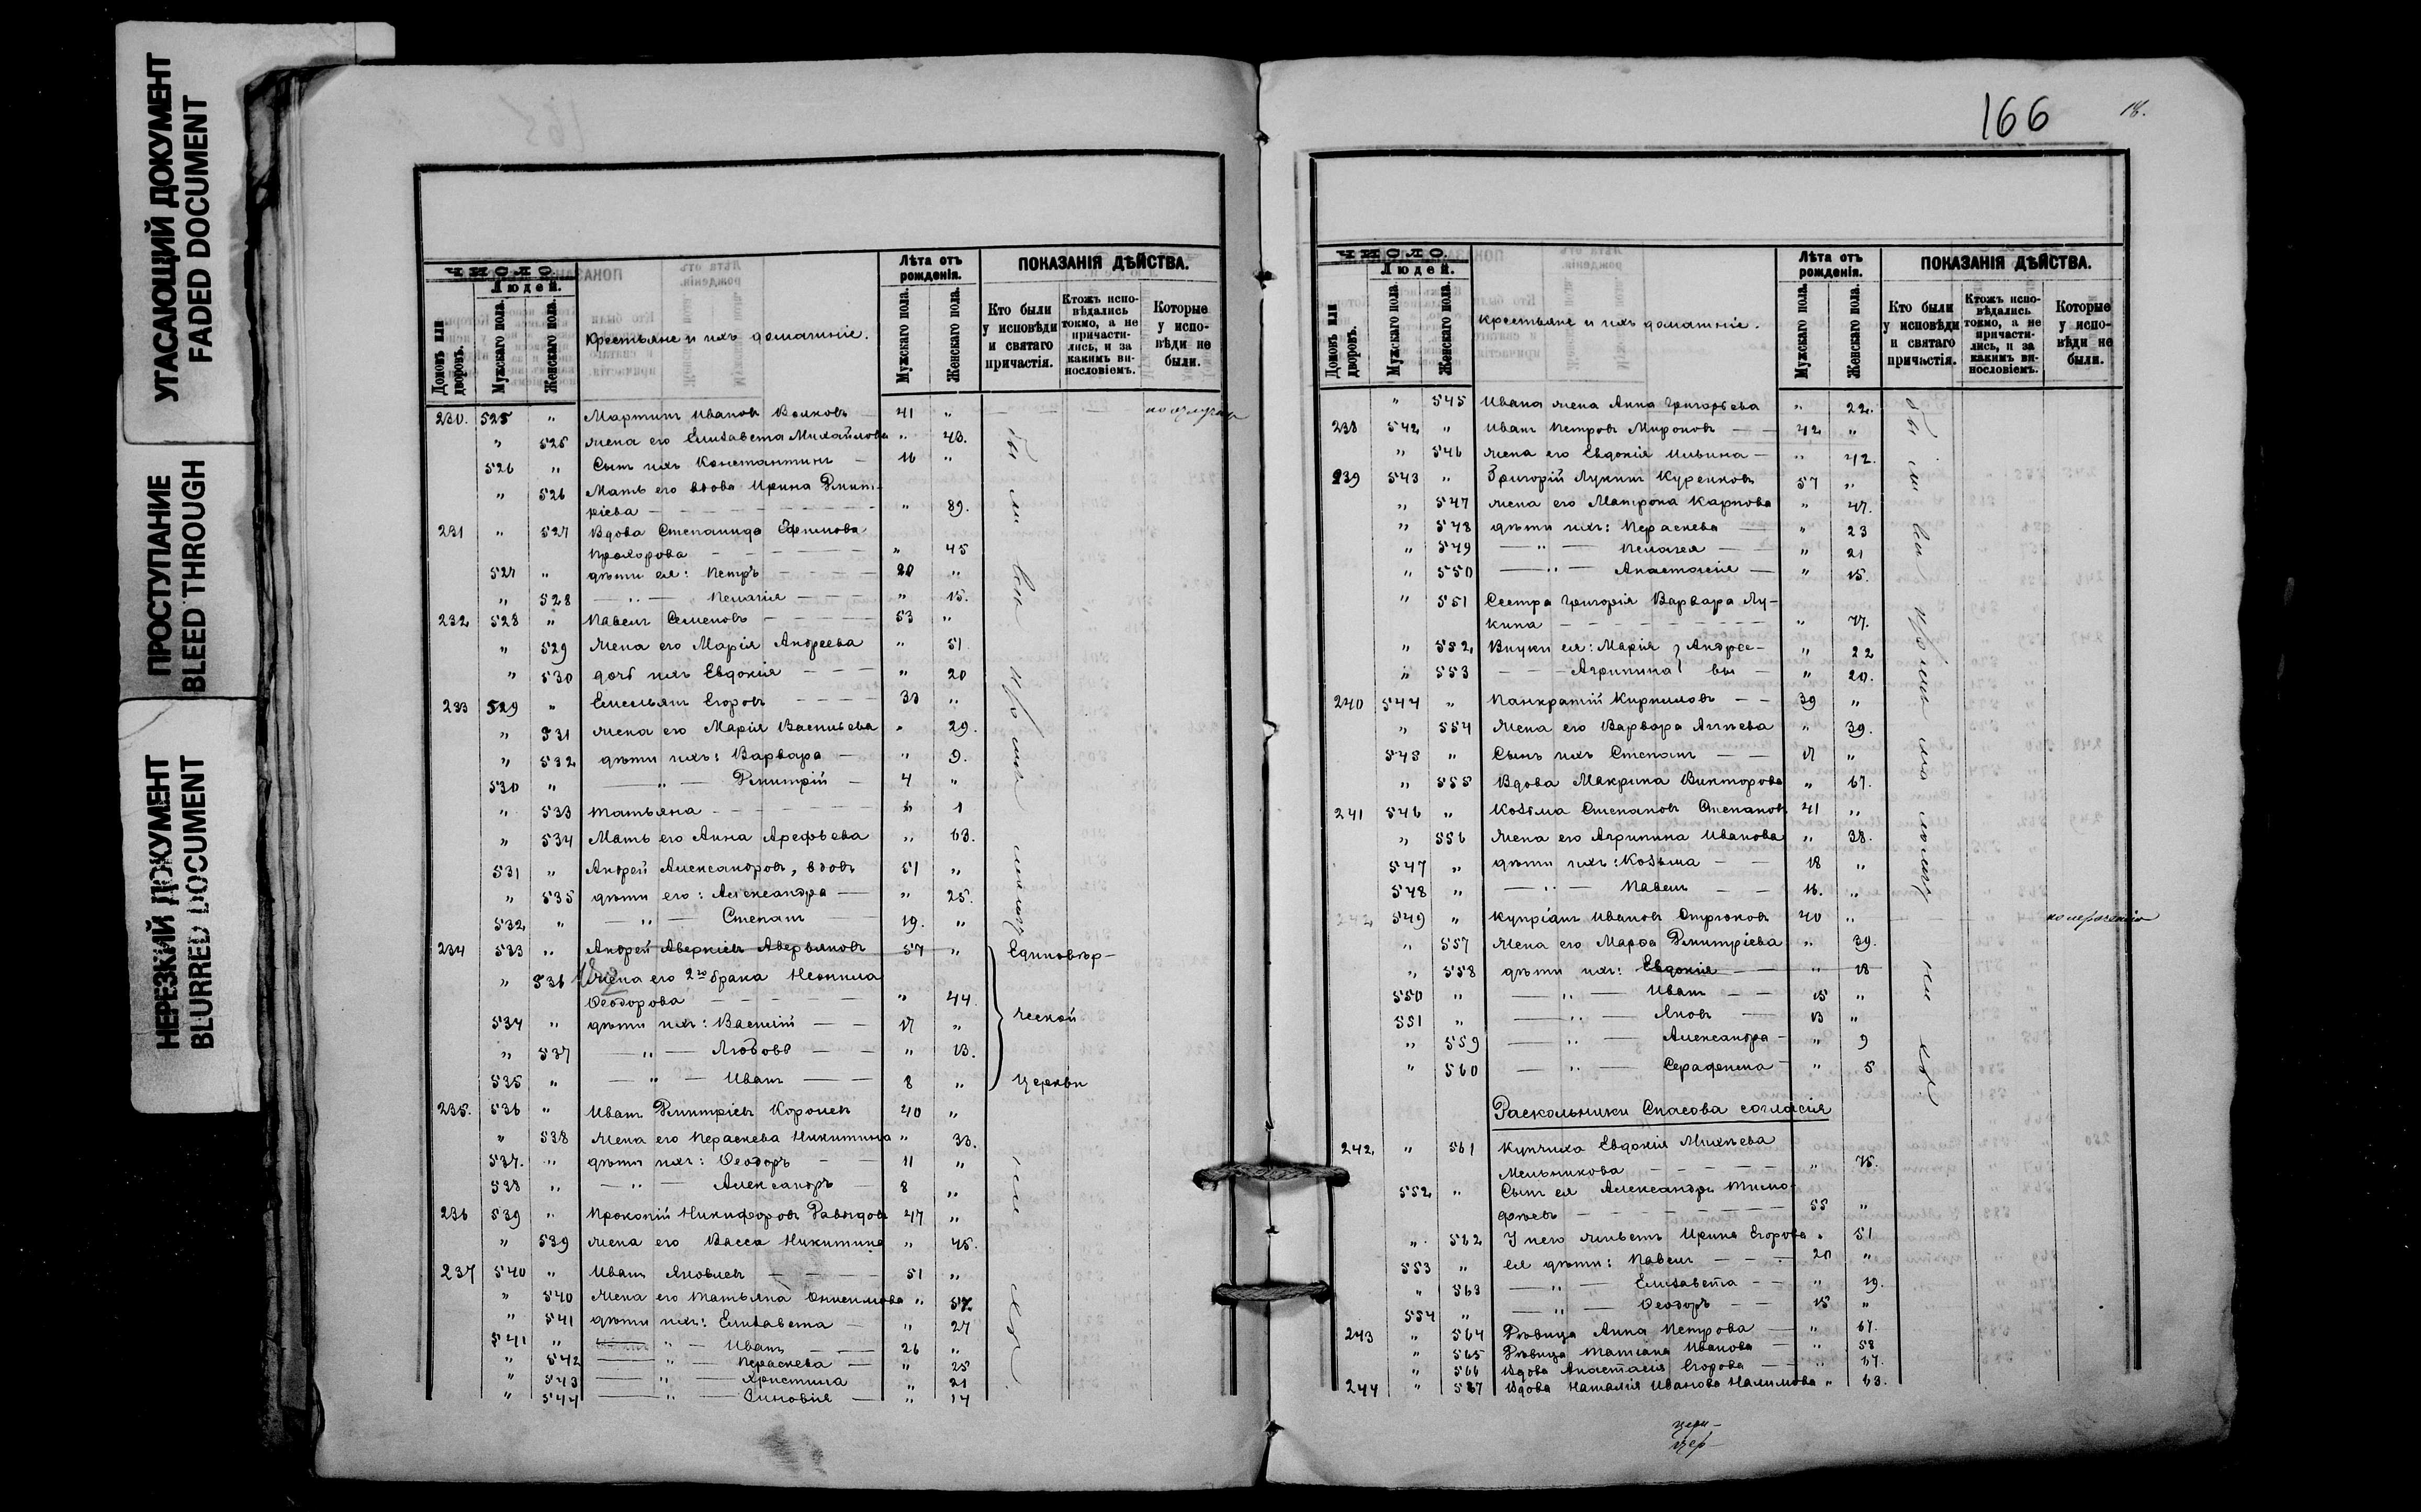 УГАСАЮЩИЙ ДОКУМЕНТ
FADED DOCUMENT
ПРОСТУПАНИЕ
BLEED THROUGH
НЕРЕЗКИЙ ДОКУМЕНТ
BLURRED DOCUMENT
ЧИСЛО.
Людей.
Домовъ или дворовъ.
Мужскаго пола.
Женскаго пола.
Крестьяне и ихъ домашніе.
Лѣта отъ рожденія.
Мужскаго пола.
Женскаго пола.
ПОКАЗАНІЯ ДѢЙСТВА.
Кто были у исповѣди и святаго причастія.
Ктожъ исповѣдались токмо, а не причастились, и за какимъ винословіемъ.
Которые у исповѣди не были.
230. 525 " Мартинъ Ивановъ Волковъ 41 "
" 525 жена его Елисавета Михайлова " 43.
526 " Сынъ ихъ Константинъ — 16 "
" 526 Мать его вдова Ирина Дмит-
ріева " 89.
231 " 527 Вдова Степанида Ефимова
Прохорова " 45
527 " дѣти ея: Петръ 20 "
" 528 — " — Пелагія " 15.
232 528 " Павелъ Семеновъ 53 "
" 529 жена его Марія Андреева " 51
" 530 дочь ихъ Евдокія " 20
233 529 " Емельянъ Егоровъ 33 "
" 531 жена его Марія Васильева " 29.
" 532 дѣти ихъ: Варвара — " 9.
530 " — " — Дмитрій — 4 "
" 533 Татьяна " 1
" 534 Мать его Анна Арефьева " 63.
531 " Андрей Александровъ, вдовъ 51 "
" 535 дѣти его: Александра — " 25.
532 " — " — Степанъ 19. "
234 533 " Андрей Аверкіевъ Аверьяновъ 57 " Единовѣр-
" 536 Жена его 2го брака Неонила
Ѳеодорова " 44.
534 " дѣти ихъ: Василій — 17 " ческой
" 537 — " — Любовь — " 13.
535 " — " — Иванъ — 8 " церкви
235. 536 " Иванъ Дмитріевъ Королевъ 40 "
" 538 жена его Параскева Никитина " 33.
537. " дѣти ихъ: Ѳеодоръ — 11 "
538 " — " — Александръ — 8 "
236 539 " Прокопій Никифоровъ Давыдовъ 47 "
" 539 жена его Васса Никитина " 45.
237 540 " Иванъ Яковлевъ 51 "
" 540 жена его Татьяна Онисимова " 52
" 541 дѣти ихъ: Елисавета — " 27
541 " — " — Иванъ 26 "
" 542 — " — Параскева — " 25
" 543 — " — Христина " 21
" 544 — " — Зиновія — " 14
166
18.
ЧИСЛО.
Людей.
Домовъ или дворовъ.
Мужскаго пола.
Женскаго пола.
Крестьяне и ихъ домашніе.
Лѣта отъ рожденія.
Мужскаго пола.
Женскаго пола.
ПОКАЗАНІЯ ДѢЙСТВА.
Кто были у исповѣди и святаго причастія.
Ктожъ исповѣдались токмо, а не причастились, и за какимъ винословіемъ.
Которые у исповѣди не были.
" 545 Ивана жена Анна Григорьева " 22.
238 542 " Иванъ Петровъ Мироновъ — 42 "
" 546 жена его Евдокія Ильина — " 42.
239 543 " Григорій Лукинъ Куренковъ 57 "
" 547 жена его Матрона Карпова " 47.
" 548 дѣти ихъ: Параскева — " 23
" 549 — " — Пелагея — " 21
" 550 — " — Анастасія — " 15.
" 551 Сестра Григорія Варвара Лу-
кина " 77.
" 552 Внуки ея: Марія } Андрее- " 22
" 553 — Агрипина } вы — " 20.
240 544 " Панкратій Кирилловъ — 39 "
" 554 жена его Варвара Агѣева " 39.
545 " Сынъ ихъ Степанъ — 17 "
" 555 Вдова Макрина Викторова " 67.
241 546 " Козьма Степановъ Степановъ 41 "
" 556 жена его Агрипина Иванова " 38.
547 " дѣти ихъ: Козьма — 18 "
548 " — " — Павелъ — 16. "
242 549 " Купріанъ Ивановъ Стрюковъ 40 "
" 557 жена его Марѳа Дмитріева " 39.
" 558 дѣти ихъ: Евдокія — " 18
550 " — " — Иванъ — 15 "
551 " — " — Яковъ — 13 "
" 559 — " — Александра — " 9
" 560 — " — Серафима — " 5
Раскольники Спасова согласія
242. " 561 Купчиха Евдокія Михѣева
Мельникова " 75.
552 " Сынъ ея Александръ Тимо-
фѣевъ 55 "
" 562 У него живетъ Ирина Егорова " 51
553 " ея дѣти: Павелъ — 20 "
" 563 — " — Елисавета — " 19.
554 " — " — Ѳеодоръ — 15 "
243 " 564 Дѣвица Анна Петрова — " 67.
" 565 Дѣвица Татіана Иванова — " 58
" 566 Вдова Анастасія Егорова — " 67.
244 " 567 Вдова Наталія Иванова Налимова " 63.